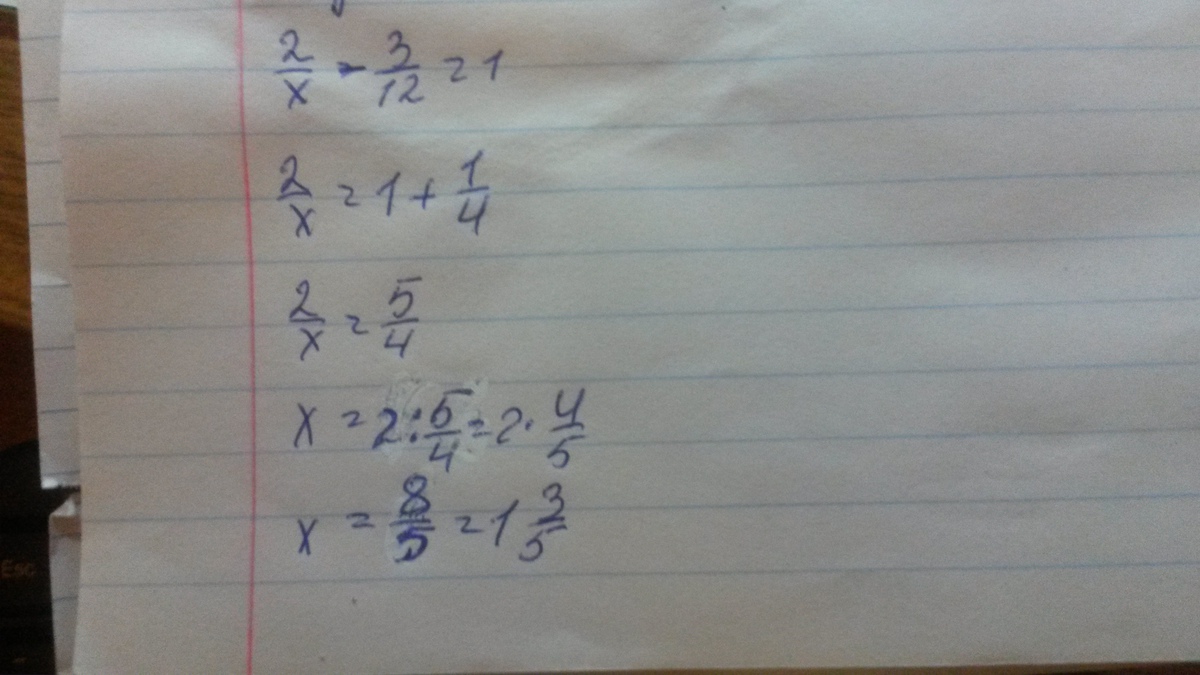 2/x - 3/12 = 1
2/x = 1 + 1/4
2/x = 5/4
x = 2 : 5/4 = 2 · 4/5
x = 8/5 = 1 3/5
Esc